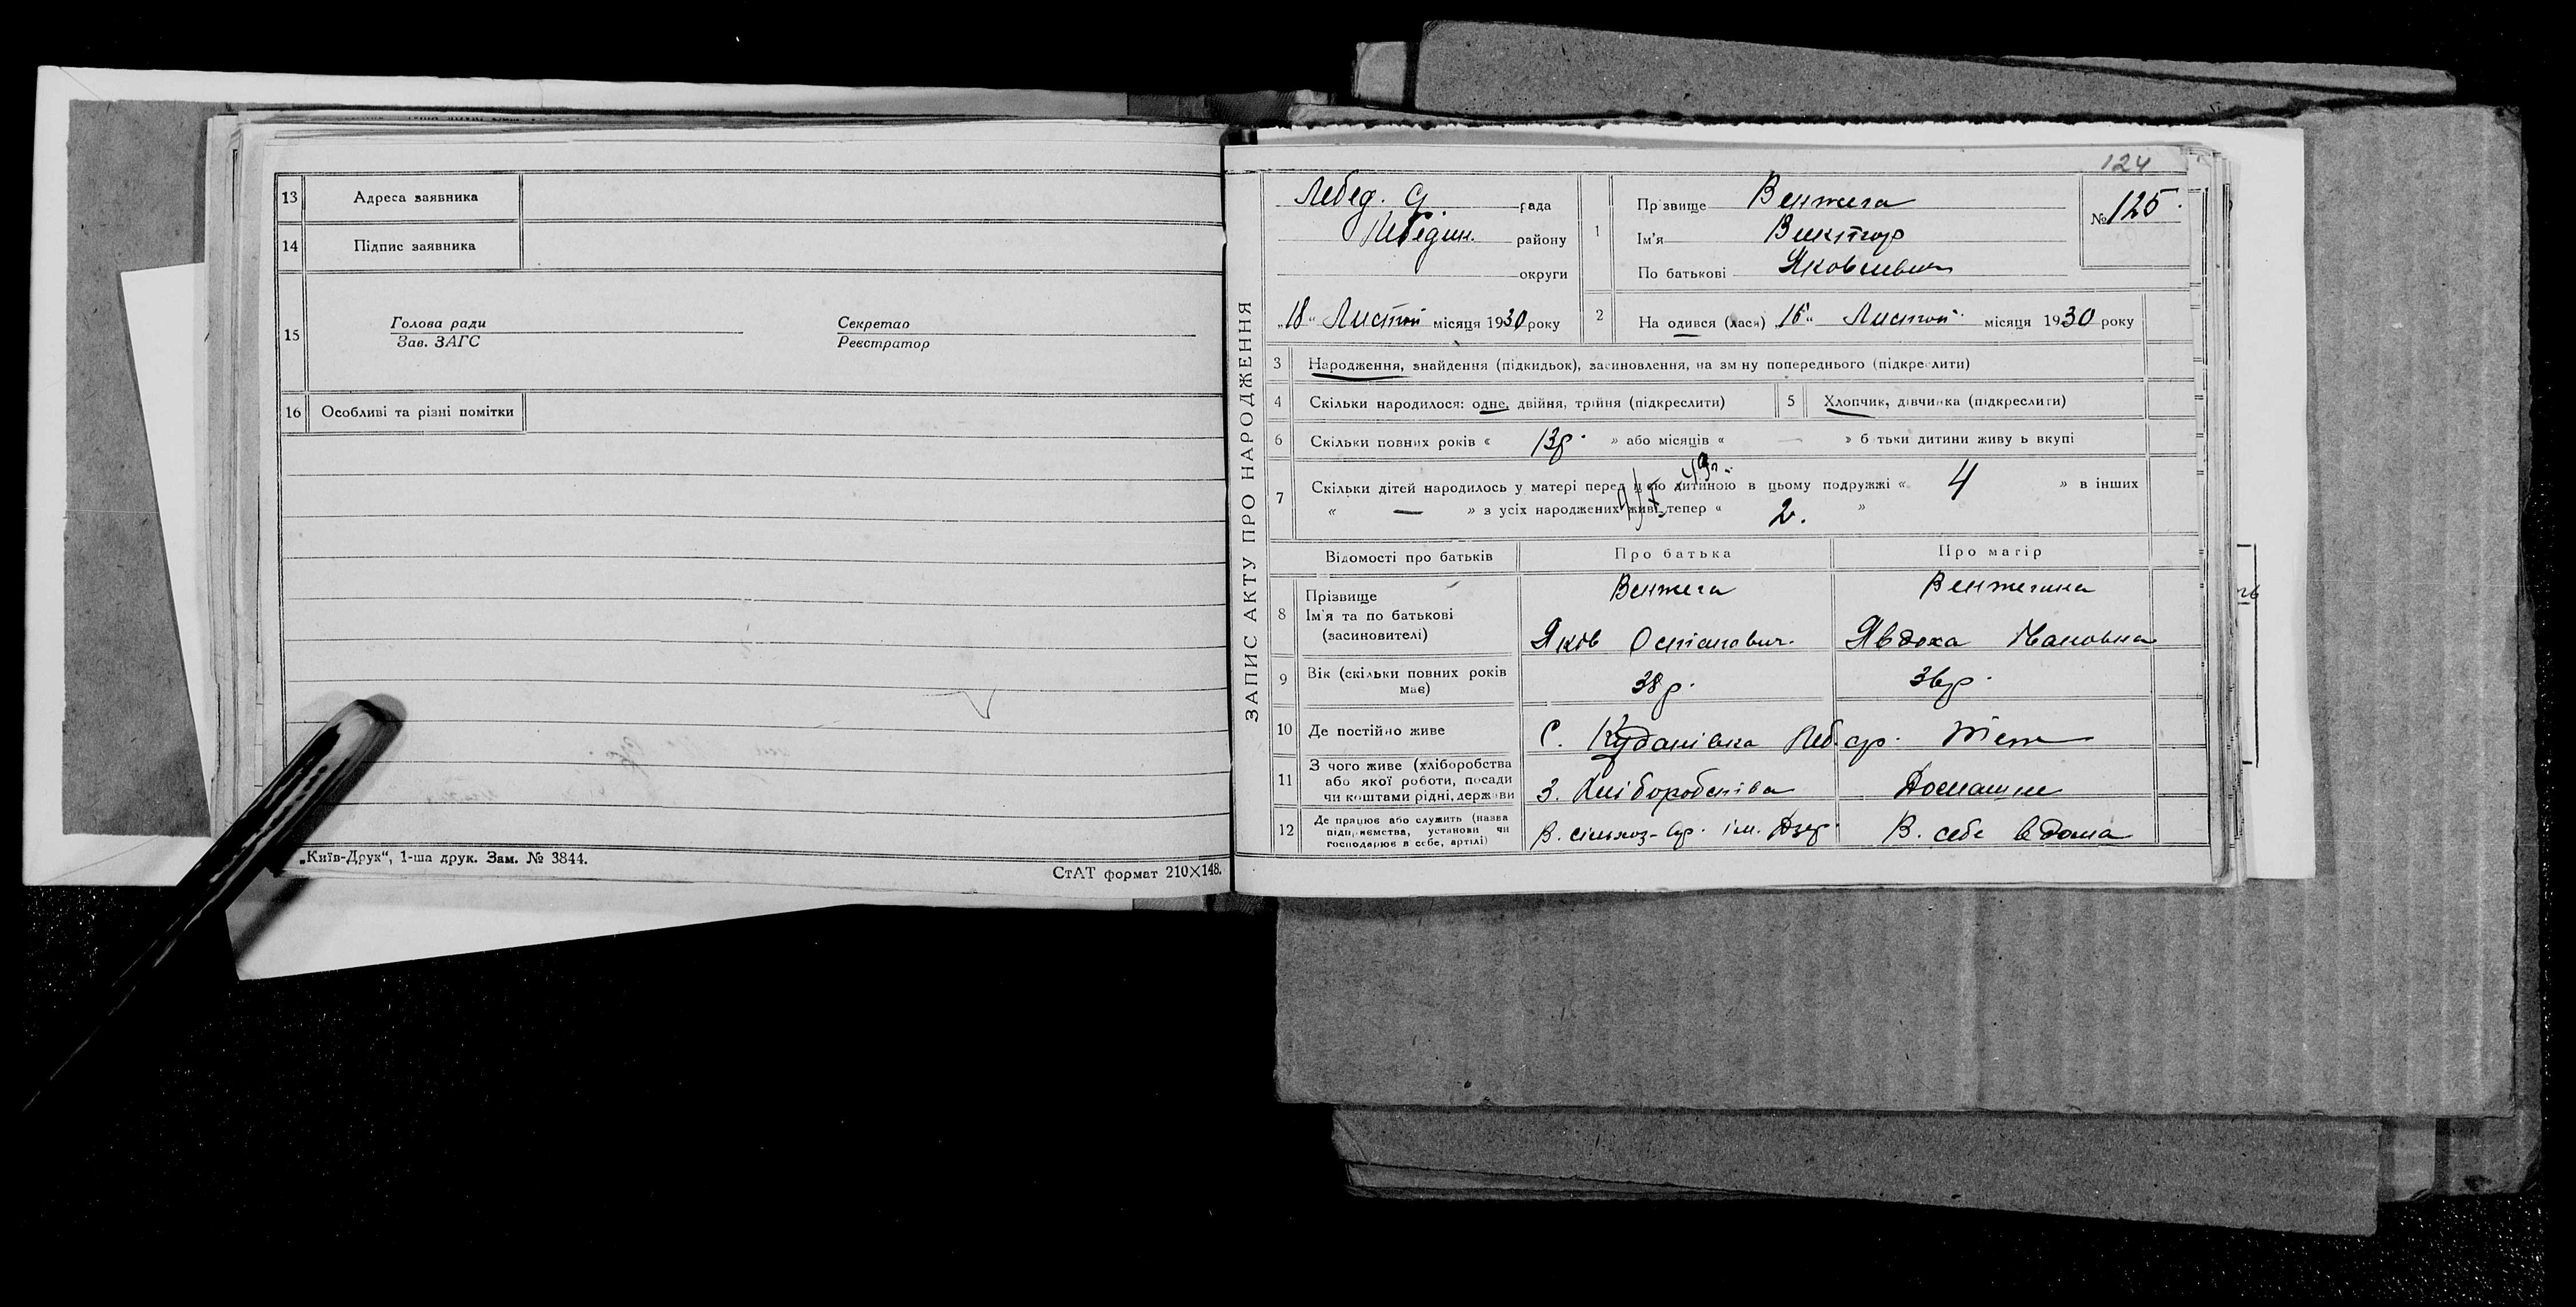 13 Адреса заявника
14 Підпис заявника
15 Голова ради Секретар
Зав. ЗАГС Реєстратор
16 Особливі та різні помітки
„Київ-Друк“, 1-ша друк. Зам. № 3844.
СтАТ формат 210×148.
124
ЗАПИС АКТУ ПРО НАРОДЖЕННЯ
Лебед. С. рада
Лебедин. району
округи
„18“ Листоп місяця 1930 року
1 Прізвище Венжега
Ім'я Виктор
По батькові Яковлевич
№ 125.
2 На одився (лася) „16“ Листоп. місяця 1930 року
3 Народження, знайдення (підкидьок), засиновлення, на зм ну попереднього (підкреслити)
4 Скільки народилося: одне, двійня, трійня (підкреслити)
5 Хлопчик, дівчинка (підкреслити)
6 Скільки повних років « 13р. » або місяців « — » б тьки дитини живу ь вкупі
7 Скільки дітей народилось у матері перед цією дитиною в цьому подружжі « 4 » в інших
« — » з усіх народжених живі тепер « 2. »
Відомості про батьків Про батька Про матір
8 Прізвище Венжега Венжегина
Ім'я та по батькові
(засиновителі) Яків Остапович. Явдоха Івановна
9 Вік (скільки повних років має) 38 р. 36 р.
10 Де постійно живе С. Куданівка Леб. ср. теж
11 З чого живе (хліборобства
або якої роботи, посади
чи коштами рідні, держави З. Хліборобства Домашне
12 Де працює або служить (назва
підприємства, установи чи
господарює в себе, артілі) В. сільхоз- ар. ім. Дзер. В. себе в дома